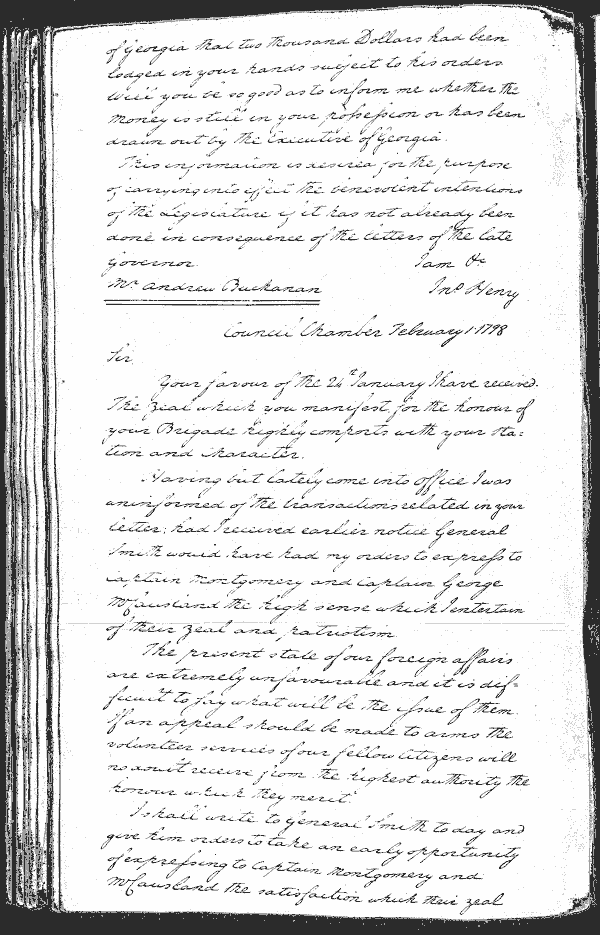 of Georgia that two thousand Dollars had been
lodged in your hands subject to his orders
Will you be so good as to inform me whether the
money is still in your possession or has been
drawn out by the Executive of Georgia.
This information is desired for the purpose
of carrying into effect the benevolent intentions
of the Legislature if it has not already been
done in consequence of the letters of the late
Governor
I am &c
Mr Andrew Buchanan
Jno Henry
Council Chamber February 1 1798
Sir
Your favour of the 24th January I have received.
The zeal which you manifest for the honour of
your Brigade highly comports with your sta=
tion and character.
Having but lately come into office I was
uninformed of the transactions related in your
letter; had I received earlier notice General
Smith would have had my orders to express to
Captain Montgomery and Captain George
McCausland the high sense which I entertain
of their zeal and patriotism
The present state of our foreign affairs
are extremely unfavourable and it is dif=
ficult to say what will be the issue of them.
If an appeal should be made to arms the
volunteer services of our fellow Citizens will
no doubt receive from the highest authority the
honour which they merit.
I shall write to General Smith to day and
give him orders to take an early opportunity
of expressing to Captain Montgomery and
McCausland the satisfaction which their zeal